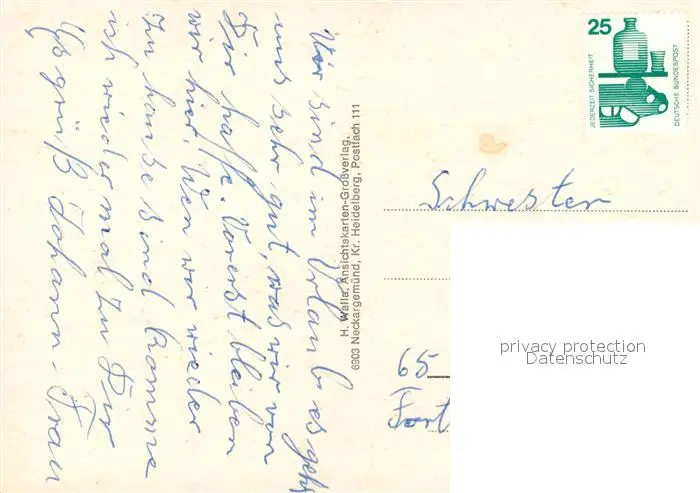 Wir sind im Urlaub es geht
uns sehr gut, was wir von
Dir hoffe. Vorerst bleiben
wir hier. Wen wir wieder
zu hause sind komme
ich wieder mal zu Dir
Es grüß Johann - Frau
H. Walla, Ansichtskarten-Großverlag,
6903 Neckargemünd, Kr. Heidelberg, Postfach 111
25
JEDERZEIT SICHERHEIT
DEUTSCHE BUNDESPOST
Schwester
65
privacy protection
Datenschutz